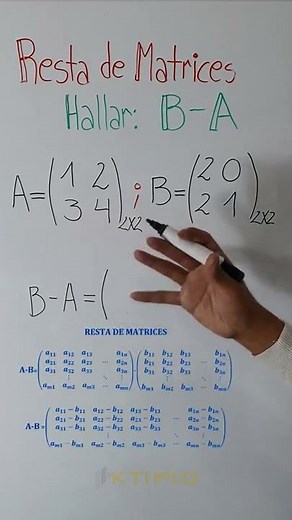 Resta de Matrices
Hallar: B-A
A=(1 2
3 4)2x2 ; B=(2 0
2 1)2x2
B-A=(
RESTA DE MATRICES
A-B=(a11 a12 a13 ... a1n
a21 a22 a23 ... a2n
a31 a32 a33 ... a3n
am1 am2 am3 ... amn) - (b11 b12 b13 ... b1n
b21 b22 b23 ... b2n
b31 b32 b33 ... b3n
bm1 bm2 bm3 ... bmn)
A-B=(a11 - b11 a12 - b12 a13 - b13 ... a1n - b1n
a21 - b21 a22 - b22 a23 - b23 ... a2n - b2n
a31 - b31 a32 - b32 a33 - b33 ... a3n - b3n
am1 - bm1 am2 - bm2 am3 - bm3 ... amn - bmn)